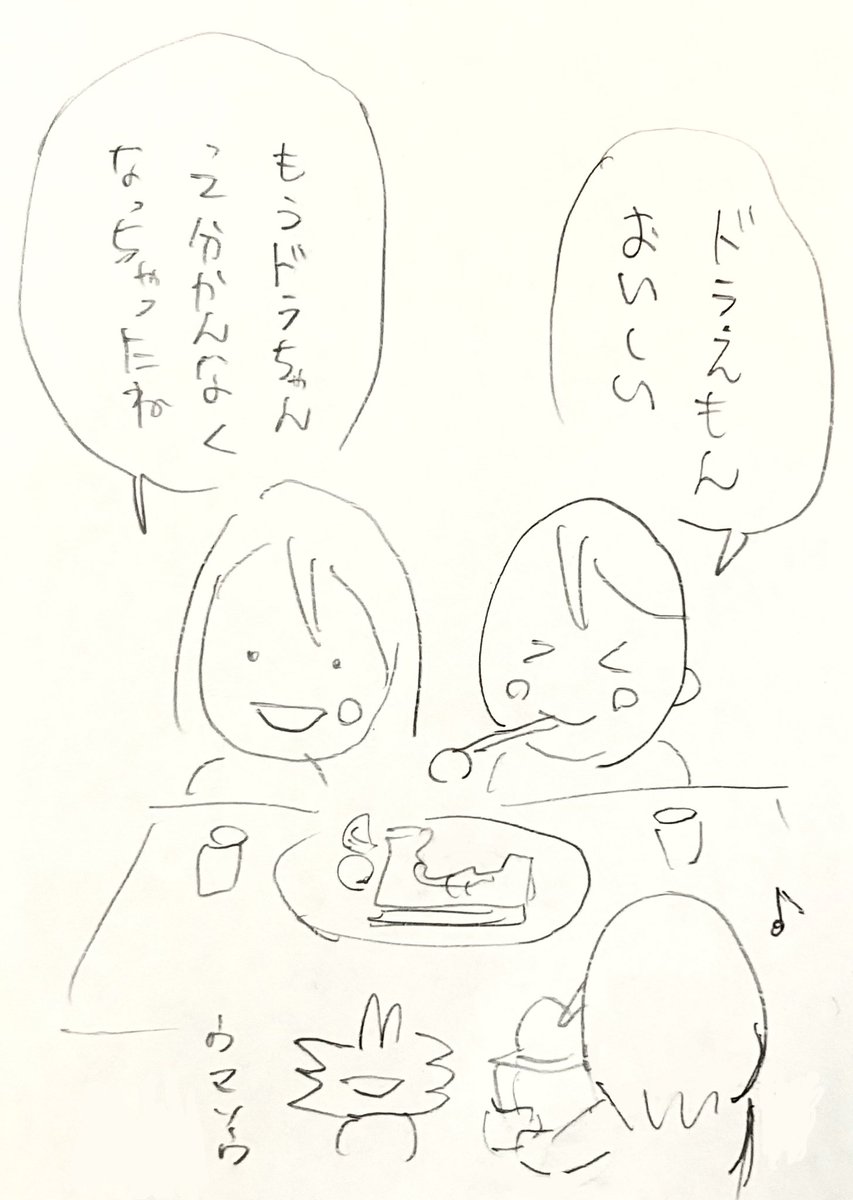 ドラえもん
おいしい
もうドラちゃん
って分かんなく
なっちゃったね
ウマソウ